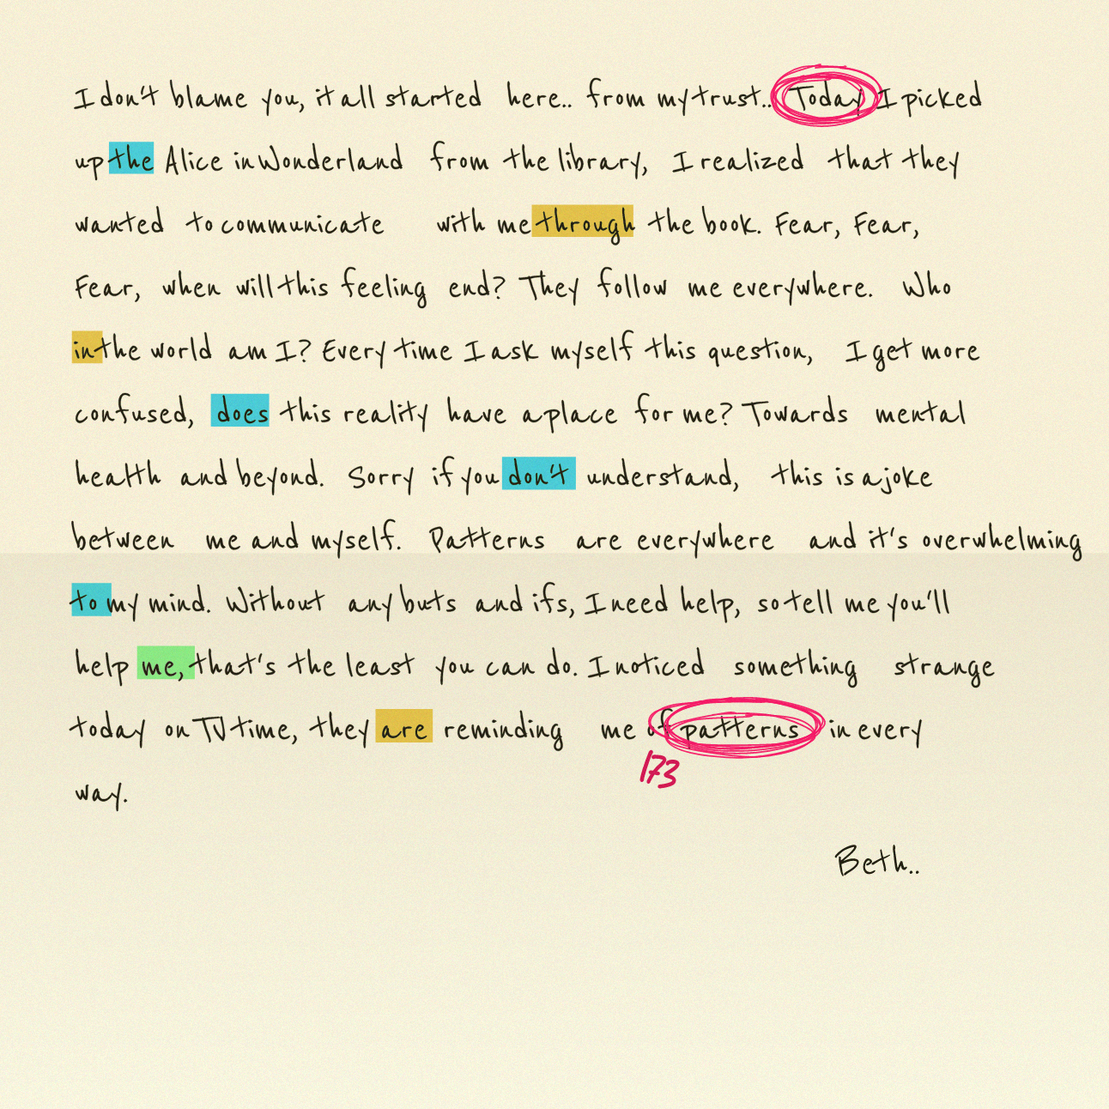 I don't blame you, it all started here.. from my trust.. Today I picked
up the Alice in Wonderland from the library, I realized that they
wanted to communicate with me through the book. Fear, Fear,
Fear, when will this feeling end? They follow me everywhere. Who
in the world am I? Every time I ask myself this question, I get more
confused, does this reality have a place for me? Towards mental
health and beyond. Sorry if you don't understand, this is a joke
between me and myself. Patterns are everywhere and it's overwhelming
to my mind. Without any buts and ifs, I need help, so tell me you'll
help me, that's the least you can do. I noticed something strange
today on TV time, they are reminding me of patterns in every
173
way.
Beth..